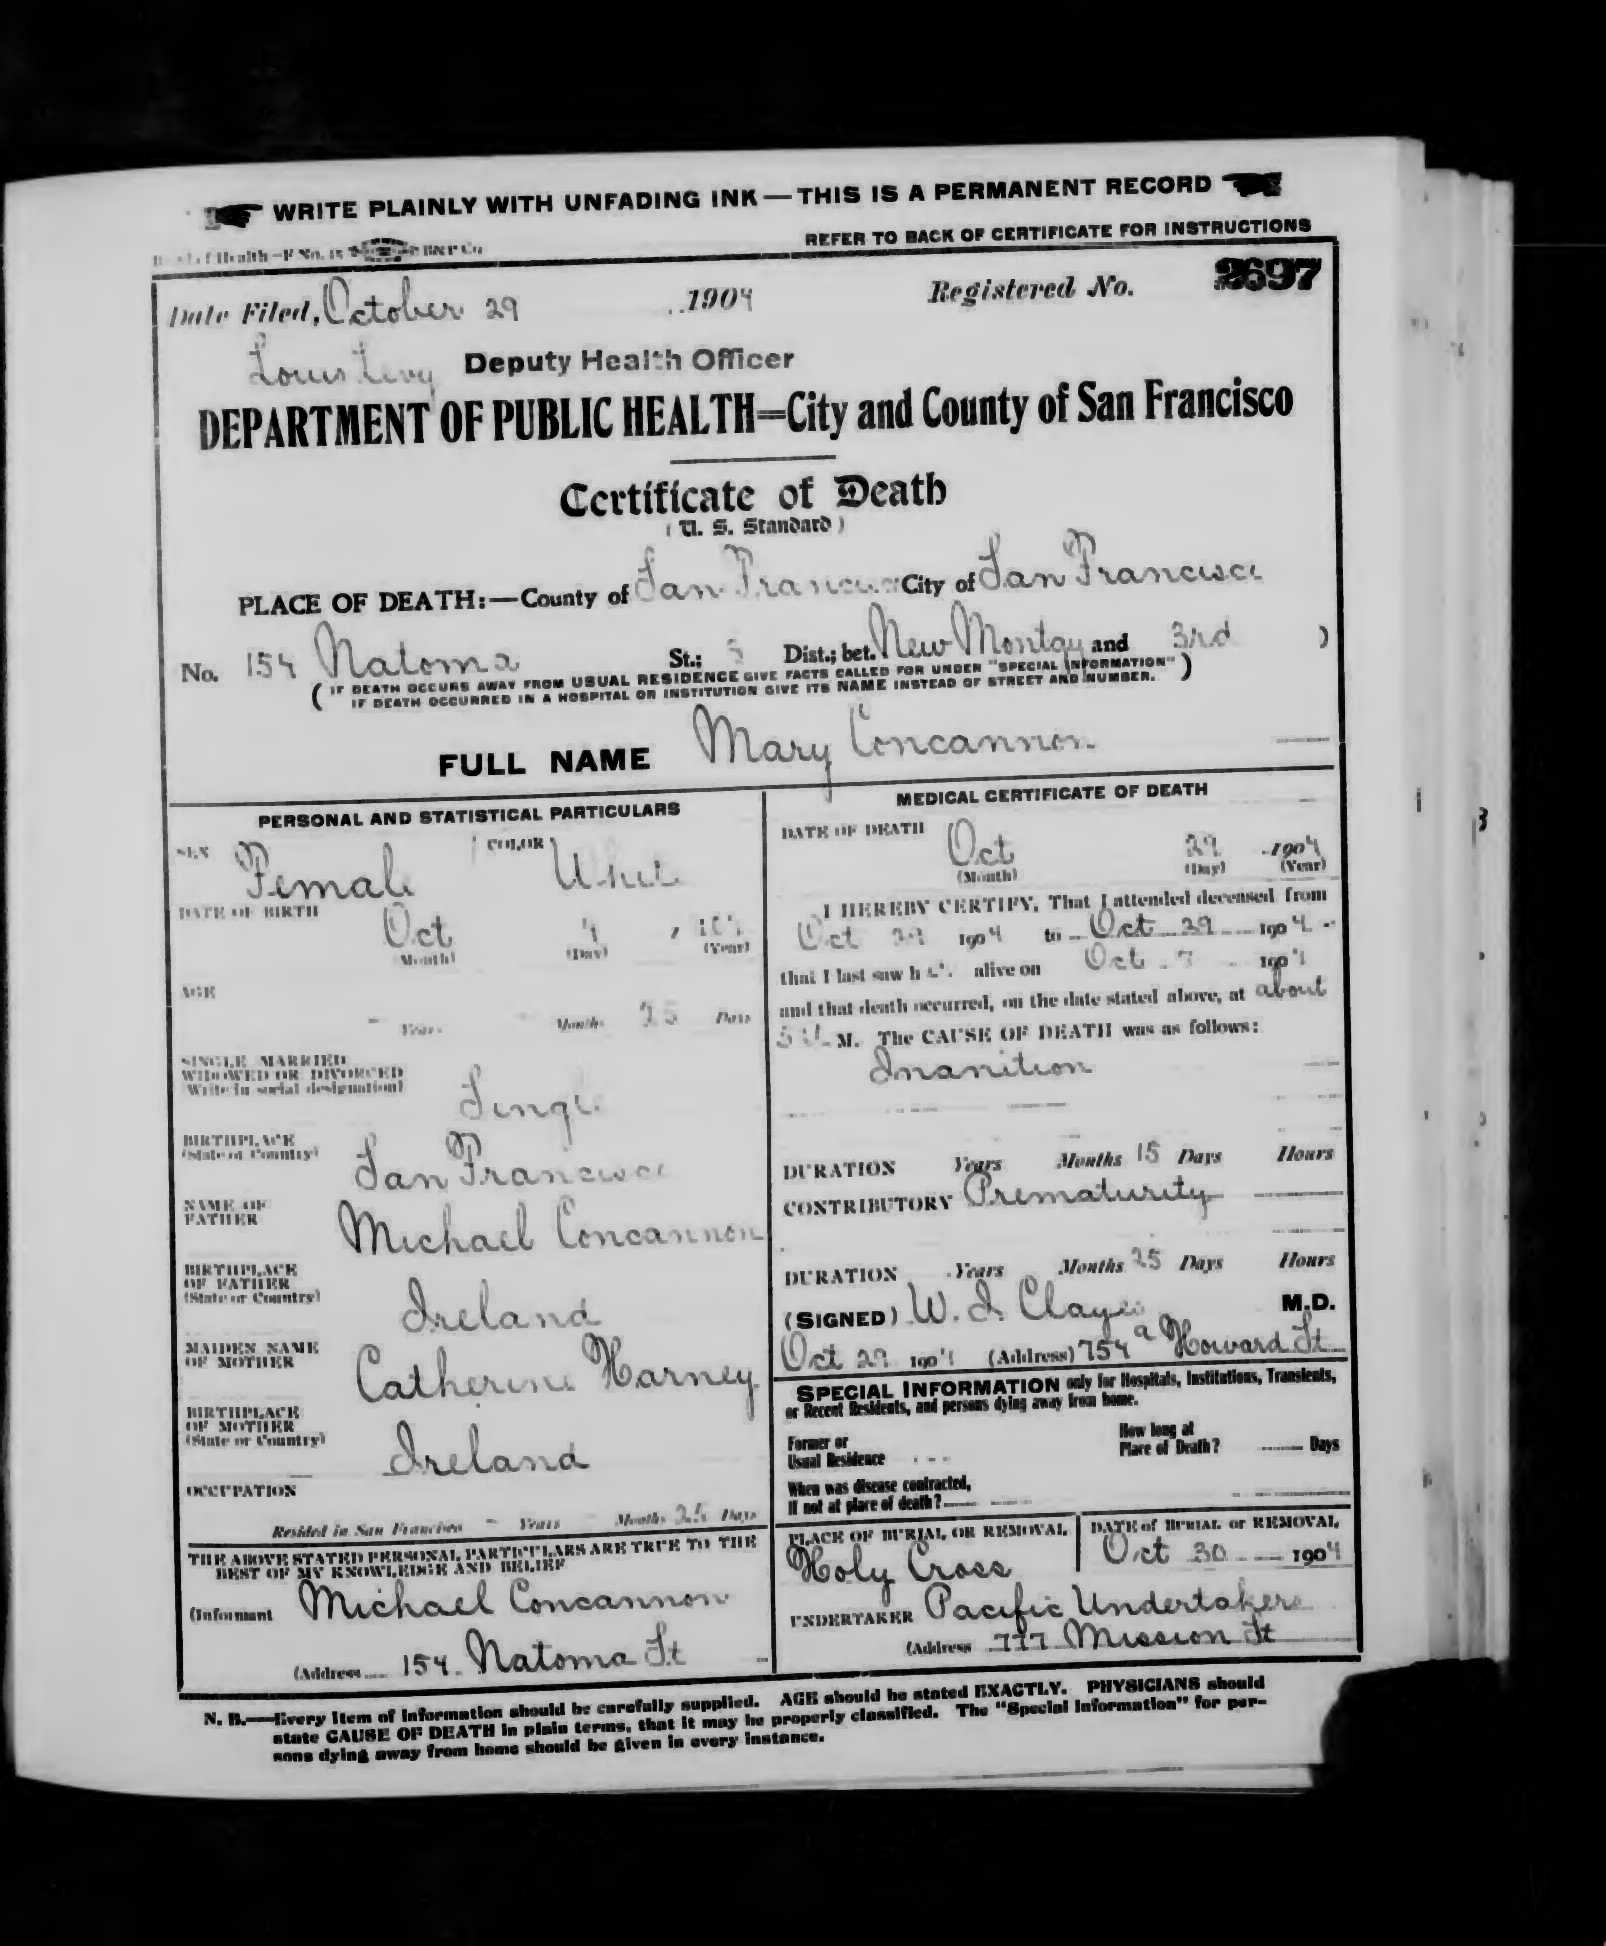 WRITE PLAINLY WITH UNFADING INK — THIS IS A PERMANENT RECORD
REFER TO BACK OF CERTIFICATE FOR INSTRUCTIONS
Date Filed, October 29 1904 Registered No. 2697
Louis Levy Deputy Health Officer
DEPARTMENT OF PUBLIC HEALTH=City and County of San Francisco
Certificate of Death
(U. S. Standard)
PLACE OF DEATH:—County of San Francisco City of San Francisco
No. 154 Natoma St.; Dist.; bet. New Montgy and 3rd )
( IF DEATH OCCURS AWAY FROM USUAL RESIDENCE GIVE FACTS CALLED FOR UNDER "SPECIAL INFORMATION" )
IF DEATH OCCURRED IN A HOSPITAL OR INSTITUTION GIVE ITS NAME INSTEAD OF STREET AND NUMBER.
FULL NAME Mary Concannon
PERSONAL AND STATISTICAL PARTICULARS
SEX Female COLOR White
DATE OF BIRTH Oct 4
(Month) (Day) (Year)
AGE
Years Months 25 Days
SINGLE MARRIED
WIDOWED OR DIVORCED
(Write in social designation)
Single
BIRTHPLACE
(State or Country)
San Francisco
NAME OF
FATHER
Michael Concannon
BIRTHPLACE
OF FATHER
(State or Country)
Ireland
MAIDEN NAME
OF MOTHER
Catherine Harney
BIRTHPLACE
OF MOTHER
(State or Country)
Ireland
OCCUPATION
Resided in San Francisco - Years Months 25 Days
THE ABOVE STATED PERSONAL PARTICULARS ARE TRUE TO THE
BEST OF MY KNOWLEDGE AND BELIEF
(Informant Michael Concannon
(Address 154 Natoma St
MEDICAL CERTIFICATE OF DEATH
DATE OF DEATH
Oct 29 1904
(Month) (Day) (Year)
I HEREBY CERTIFY, That I attended deceased from
Oct 1904 to Oct 29 1904
that I last saw her alive on Oct 7 1904
and that death occurred, on the date stated above, at about
M. The CAUSE OF DEATH was as follows:
Inanition
DURATION Years Months 15 Days Hours
CONTRIBUTORY Prematurity
DURATION Years Months 25 Days Hours
(SIGNED) W. I. M.D.
Oct 29 1904 (Address) 754 a Howard St
SPECIAL INFORMATION only for Hospitals, Institutions, Transients,
or Recent Residents, and persons dying away from home.
Former or
Usual Residence
How long at
Place of Death? Days
When was disease contracted,
If not at place of death?
PLACE OF BURIAL OR REMOVAL
Holy Cross
DATE of BURIAL or REMOVAL
Oct 30 1904
UNDERTAKER Pacific Undertakers
(Address 777 Mission St
N. B.—Every item of information should be carefully supplied. AGE should be stated EXACTLY. PHYSICIANS should
state CAUSE OF DEATH in plain terms, that it may be properly classified. The "Special Information" for per-
sons dying away from home should be given in every instance.